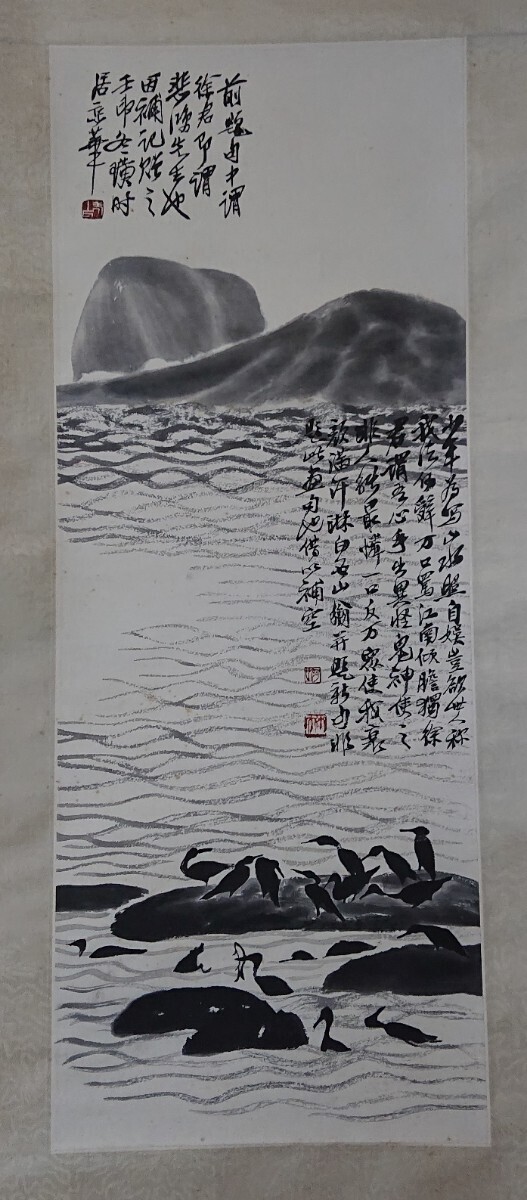 前題句中謂
徐君即謂
悲鴻先生也
因補記贈之
壬申冬璜時
居燕華
少年為寫山水照自娛豈欲世人称
我法何辭万口罵江南傾膽獨徐
君謂吾心手出異怪鬼神使之
非人能最憐一口反万衆使我衰
顏滿汗淋白石山翁并題新句非
題此画句也借以補空